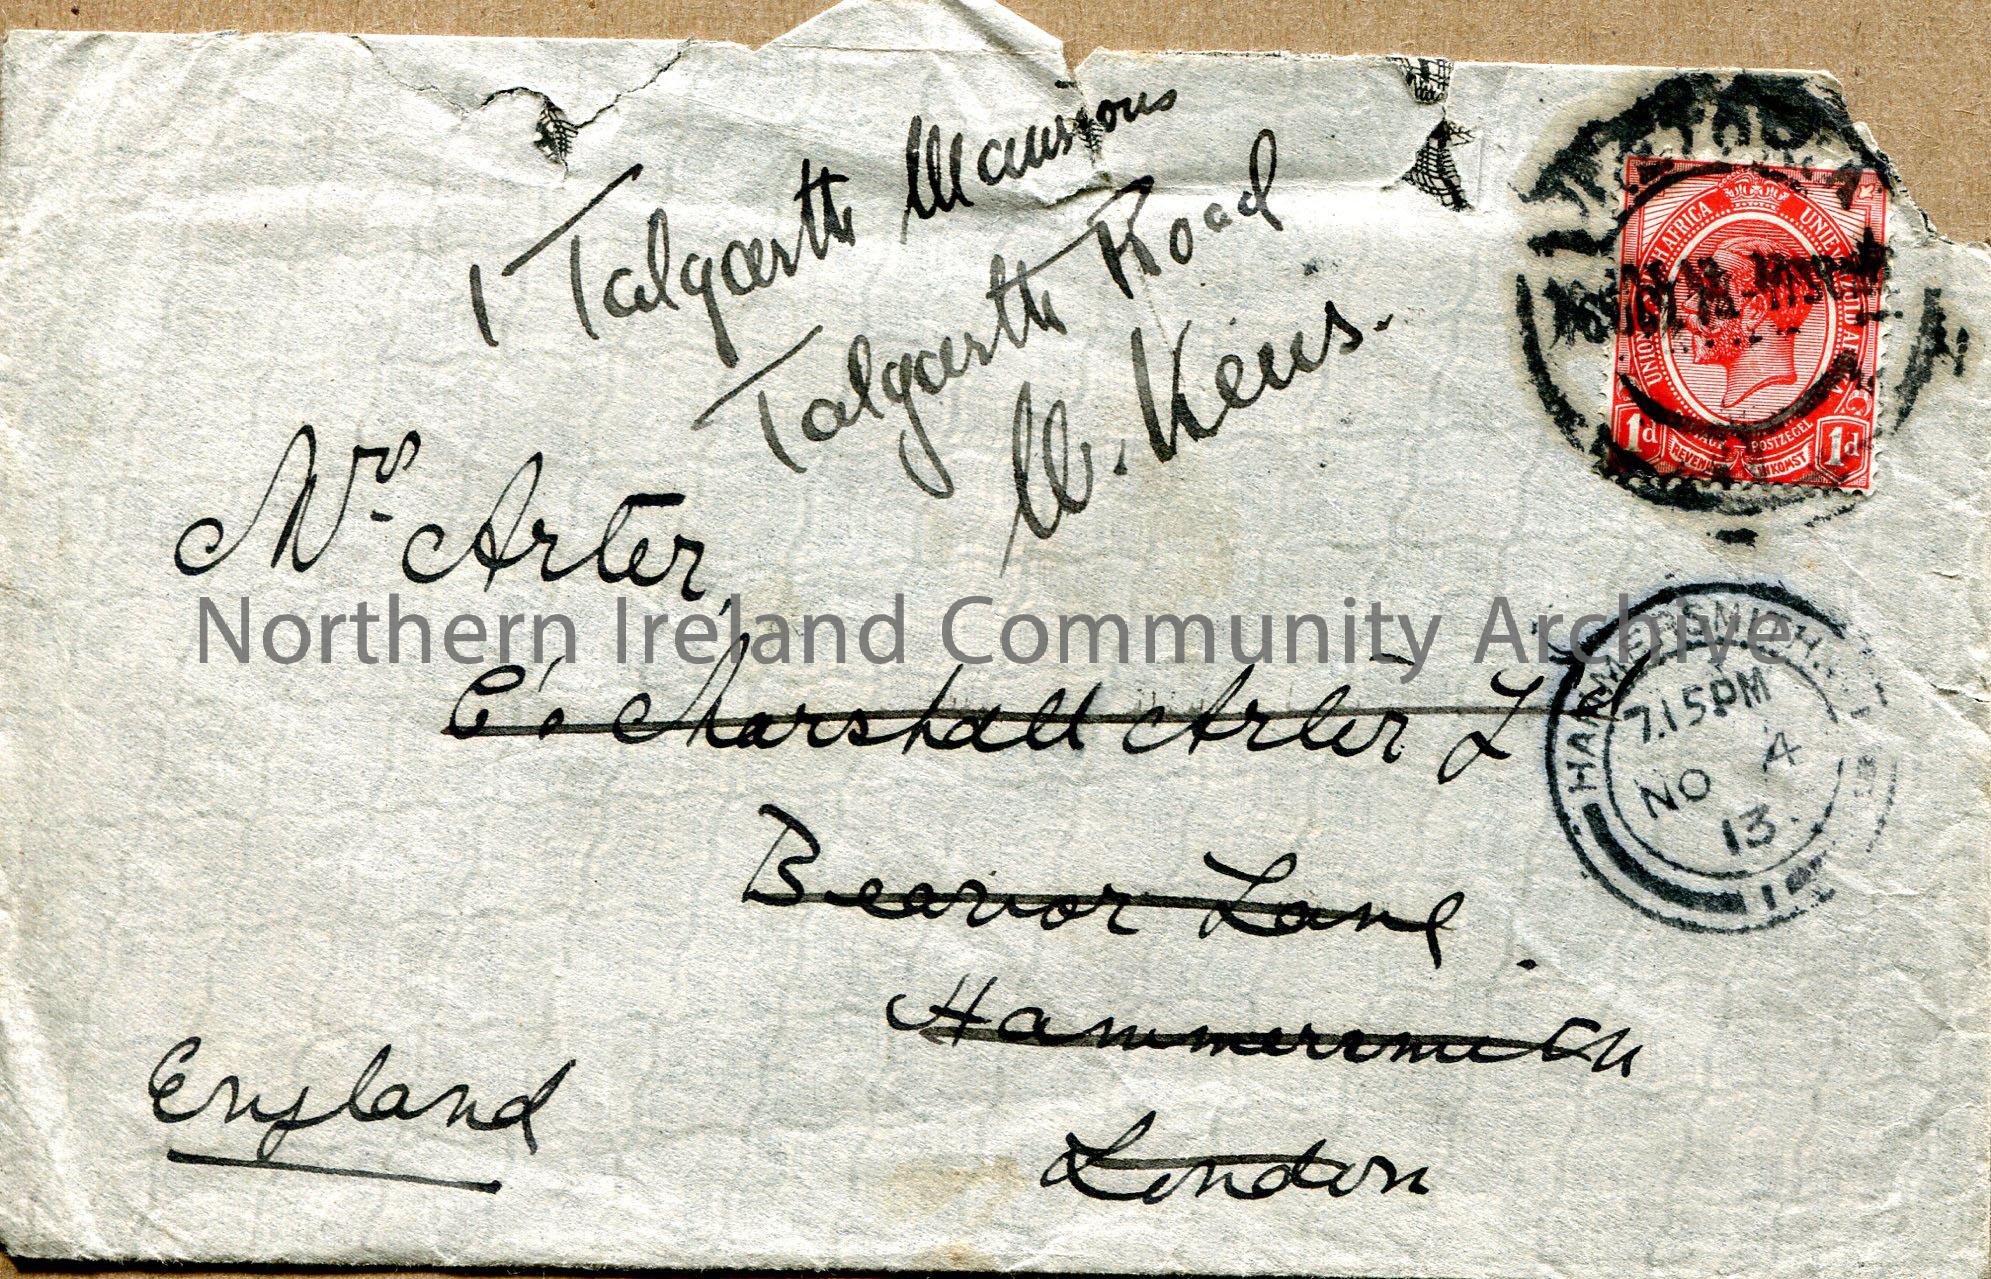 1 Talgarth Mansions
Talgarth Road
W. Kens.
Mrs Arter,
C/o Marshall Arter L
Beavor Lane
Hammersmith
London
England
UNION OF SOUTH AFRICA UNIE VAN ZUID AFRIKA
POSTZEGEL
REVENUE INKOMST
1d 1d
HAMMERSMITH
7.15PM
NO 4
13
Northern Ireland Community Archive